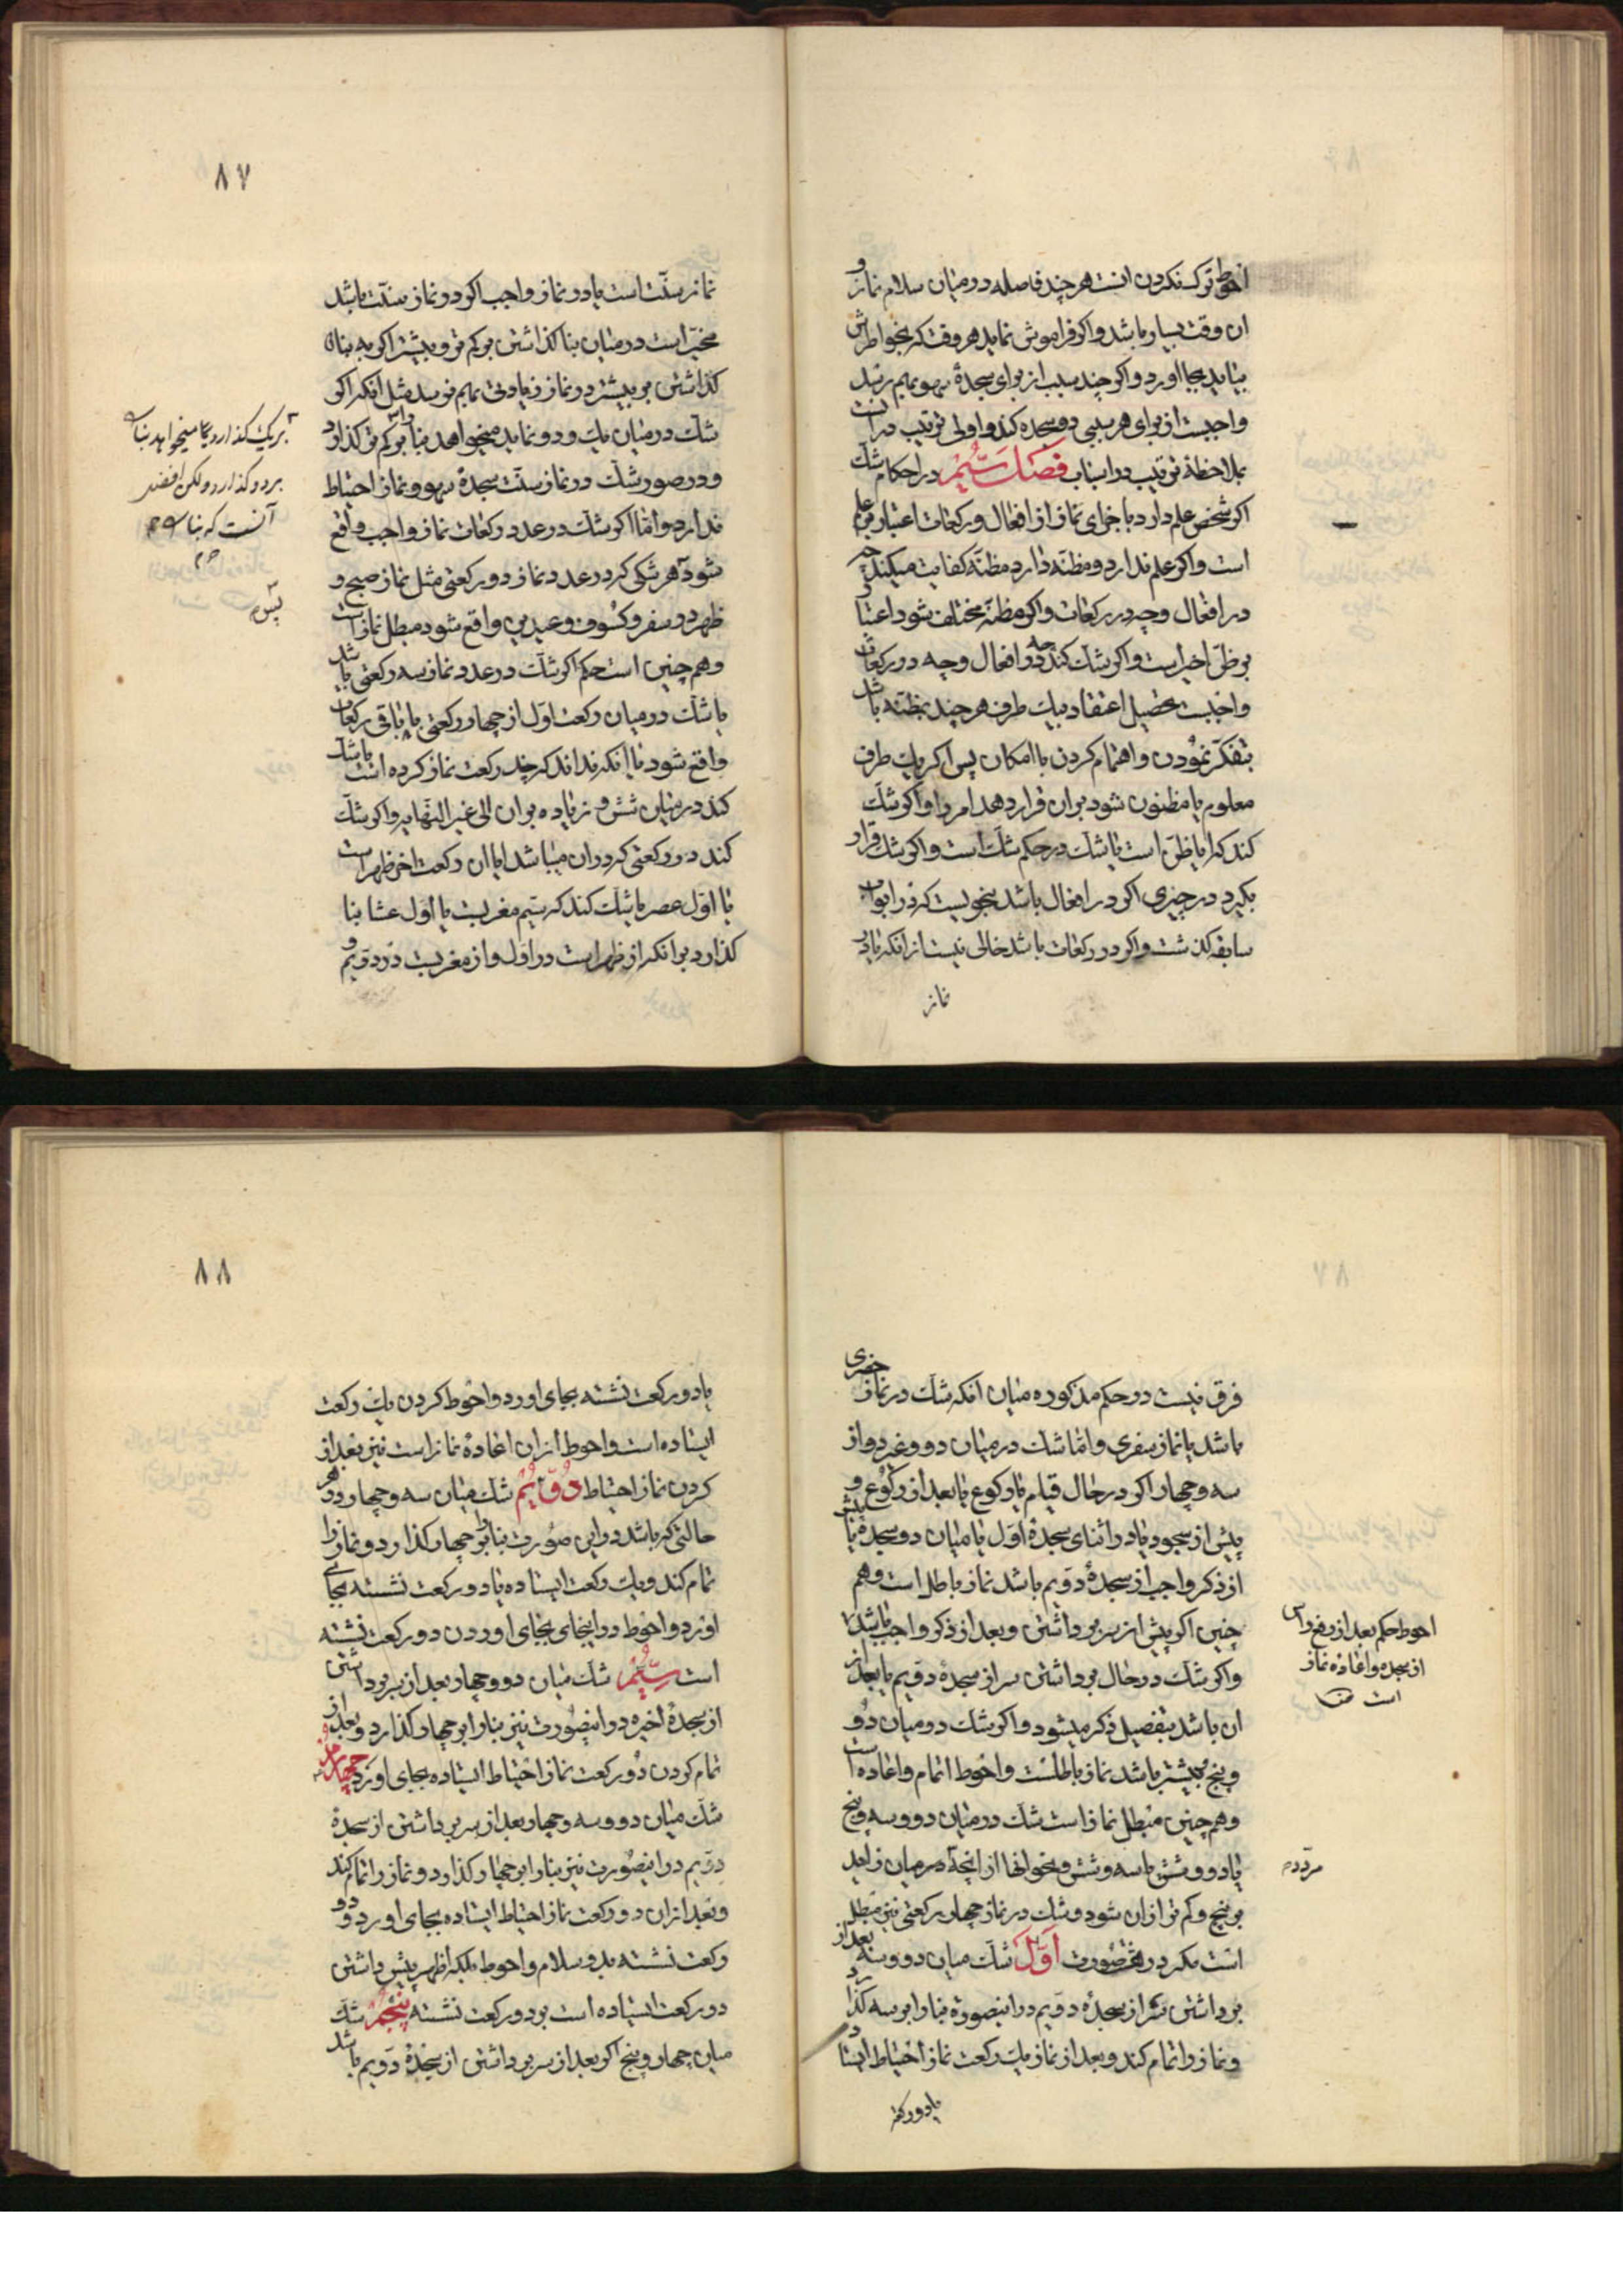 احوط ترک نکردن انست هر چند فاصله در میان سلام نماز و
ان وقت بسیار باشد و اکر فراموش نماید هر وقت که بخواطرش
بیاید بجا اورد و اکر چند سبب از برای سجدهٔ سهو بهم رسد
واجبست از برای هر سببی دو سجده کند و اولی ترتیب در انست
بملاحظهٔ ترتیب در اسباب فصل سیُّم در احکام شک
اکر شخص علم دارد باجزای نماز از افعال و رکعات اعتبار بر علم
است و اکر علم ندارد و مظنّه دارد مظنّه کفایت میکند چه
در افعال و چه در رکعات و اکر مظنّه مختلف شود اعتبار
بر ظنّ اخیر است و اکر شک کند چه در افعال و چه در رکعات
واجبست تحصیل اعتقاد بیک طرف هر چند بمظنّه باشد
بتفکّر نمودن و اهتمام کردن با امکان پس اکر یک طرف
معلوم یا مظنون شود بران قرار دهد امر را و اکر شک
کند که ایا ظنّ است یا شک در حکم شک است و اکر شک قرار
بکیرد در چیزی اکر در افعال باشد بنحویست که در ابواب
سابقه کذشت و اکر در رکعات باشد خالی نیست از انکه یا در
نماز
۸۷
نماز سنّت است یا در نماز واجب اکر در نماز سنّت باشد
مخیّر است در میان بنا کذاشتن بر کمتر و بیشتر اکر به بنا
کذاشتن بر بیشتر در نماز زیادتی بهم نرسد مثل انکه اکر
شک در میان یک و دو نماید میخواهد بنا را بر کمتر کذارد
و در صور شک در نماز سنّت سجدهٔ سهو و نماز احتیاط
ندارد و امّا اکر شک در عدد رکعات نماز واجب واقع
شود هر شکی که در عدد نماز دو رکعتی مثل نماز صبح و
ظهر در سفر و کسوف و عیدین واقع شود مبطل نماز است
و هم چنین است حکم اکر شک در عدد نماز سه رکعتی باشد
یا شک در میان رکعت اوّل از چهار رکعتی با باقی رکعات
واقع شود یا انکه نداند که چند رکعت نماز کرده است یا شک
کند در میان شش و زیاده بران الی غیر النّهایه و اکر شک
کند در رکعتی که در ان میباشد ایا ان رکعت اخر ظهر است
یا اوّل عصر یا شک کند که سیّم مغربست یا اول عشا بنا
کذارد بر انکه از ظهر است در اوّل و از مغربست در دوّیم و
بر یک کذارد یا میخواهد بنا
بر دو کذارد و لکن افضل
آنست که بنا
۸۸
فرق نیست در حکم مذکوره میان انکه شک در نماز حضری
باشد یا نماز سفری و امّا شک در میان دو و غیر دو از
سه و چهار اکر در حال قیام یا رکوع یا بعد از رکوع و
پیش از سجود یا در اثنای سجدهٔ اوّل یا میان دو سجده یا پیش
از ذکر واجب از سجدهٔ دوّیم باشد نماز باطل است و هم
چنین اکر پیش از سر برداشتن و بعد از ذکر واجب باشد
و اکر شک در حال برداشتن سر از سجدهٔ دوّیم یا بعد از
ان باشد بتفصیل ذکر میشود و اکر شک در میان دو
و پنج و بیشتر باشد نماز باطلست و احوط اتمام و اعاده است
و هم چنین مبطل نماز است شک در میان دو و سه و پنج
یا دو و شش یا سه و شش و نحو انها از انچه در میان زاید
بر پنج و کمتر از ان شود و شک در نماز چهار رکعتی نیز مبطل
است مکر در صورت اوّل شک میان دو و سه بعد از
برداشتن سر از سجدهٔ دوّیم در اینصورة بنا را بر سه کذارد
و نماز را تمام کند و بعد از نماز یک رکعت نماز احتیاط ایستاده
یا دو رکعت
احوط حکم بعد از رفع راس
از سجده و اعادهٔ نماز
است
یا دو رکعت نشسته بجای اورد و احوط کردن یک رکعت
ایستاده است و احوط از ان اعادهٔ نماز است نیز بعد از
کردن نماز احتیاط دوّیُم شک میان سه و چهار در هر
حالتی که باشد در این صورت بنا را بر چهار کذارد و نماز را
تمام کند و یک رکعت ایستاده یا دو رکعت نشسته بجای
اورد و احوط در اینجای بجای اوردن دو رکعت نشسته
است سیُّم شک میان دو و چهار بعد از سر برداشتن
از سجدهٔ اخیره در اینصورت نیز بنا را بر چهار کذارد و بعد از
تمام کردن دو رکعت نماز احتیاط ایستاده بجای اورد چهارم
شک میان دو و سه و چهار بعد از سر برداشتن از سجدهٔ
دوّیم در اینصورت نیز بنا را بر چهار کذارد و نماز را تمام کند
و بعد از ان دو رکعت نماز احتیاط ایستاده بجای اورد و دو
رکعت نشسته بدو سلام و احوط بلکه اظهر پیش داشتن
دو رکعت ایستاده است بر دو رکعت نشسته پنجم شک
میان چهار و پنج اکر بعد از سر برداشتن از سجدهٔ دوّیم باشد